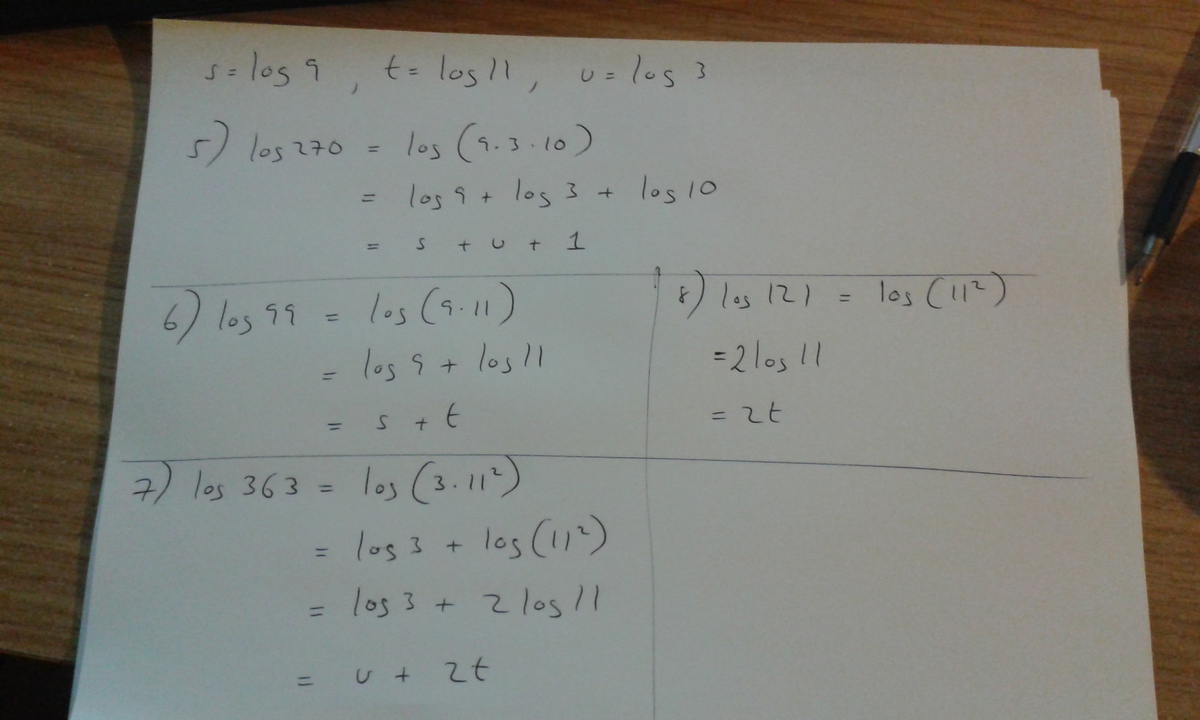 s = log 9 , t = log 11 , u = log 3
5) log 270 = log (9 · 3 · 10)
= log 9 + log 3 + log 10
= s + u + 1
6) log 99 = log (9 · 11)
= log 9 + log 11
= s + t
8) log 121 = log (11²)
= 2 log 11
= 2t
7) log 363 = log (3 · 11²)
= log 3 + log (11²)
= log 3 + 2 log 11
= u + 2t